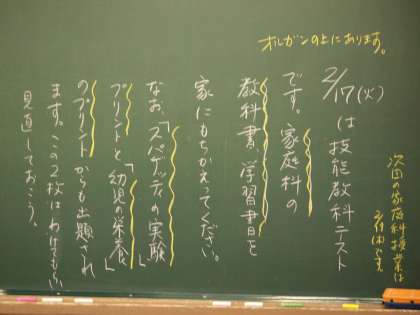 オルガンの上にあります。
次回の家庭科授業は
2/19(木)です
2/17(火)は技能教科テスト
です。家庭科の
教科書、学習書を
家にもちかえってください。
なお、「スパゲッティの実験」
プリントと「幼児の栄養」
のプリントからも出題され
ます。この2枚はわけてもいい
見直しておこう。